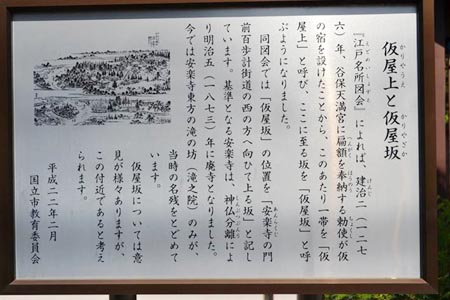 仮屋上と仮屋坂
かりやうえ かりやざか
『江戸名所図会』によれば、建治二（一二七
えどめいしょずえ けんじ
六）年、谷保天満宮に扁額を奉納する勅使が仮
の宿を設けたことから、このあたり一帯を「仮
屋上」と呼び、ここに至る坂を「仮屋坂」と呼
ぶようになりました。
同図会では「仮屋坂」の位置を「安楽寺の門
あんらくじ
前百歩計街道の西の方へ向ひて上る坂」と記し
ています。基準となる安楽寺は、神仏分離によ
り明治五（一八七三）年に廃寺となりました。
今では安楽寺東方の滝の坊（滝之院）のみが、
当時の名残をとどめて
います。
仮屋坂については意
見が様々ありますが、
この付近であると考え
られます。
平成二二年二月
国立市教育委員会